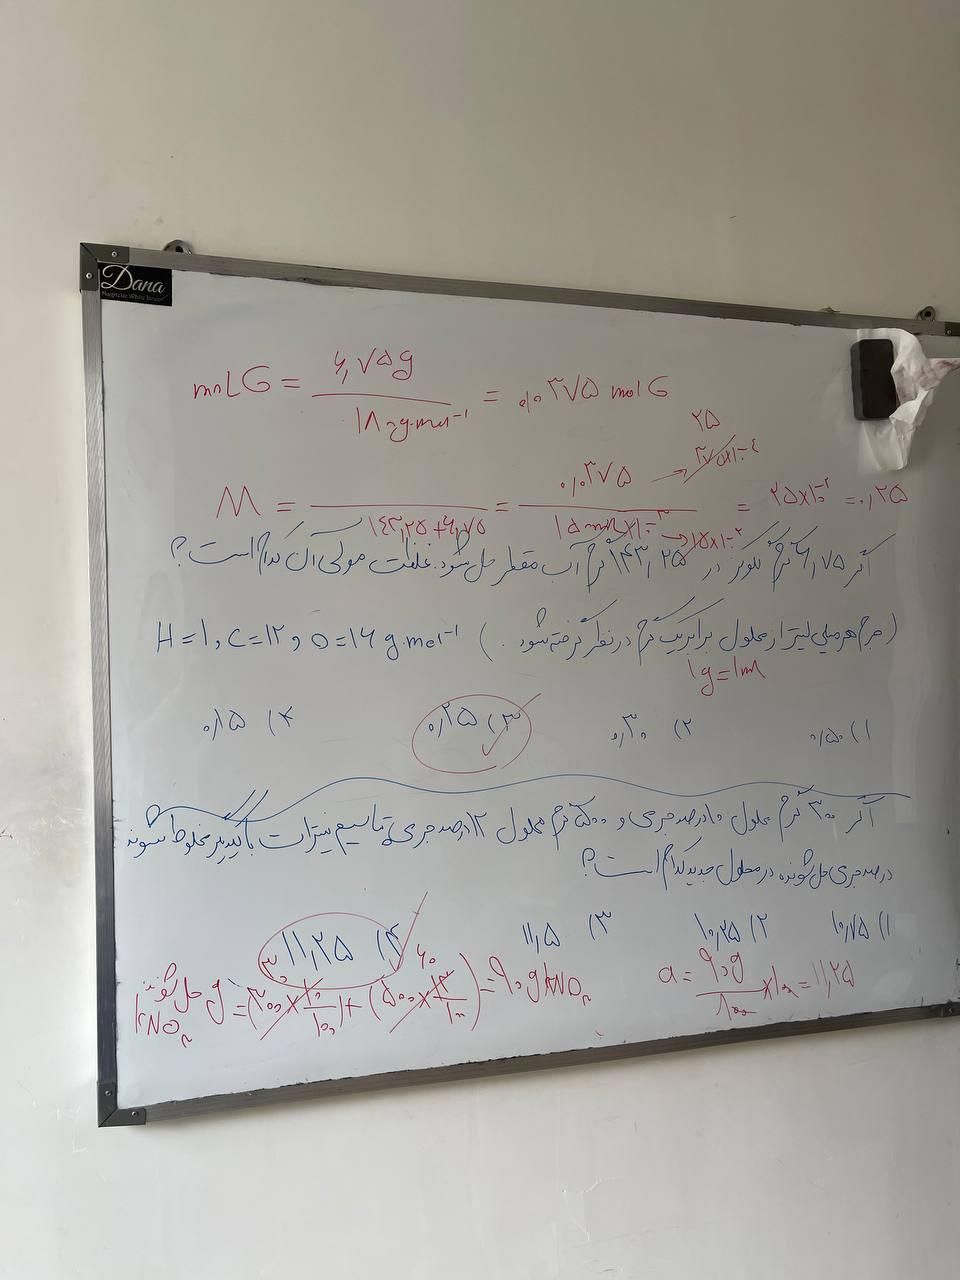 Dana
Magnetic White Board
molG = ۶,۷۵g / ۱۸۰g.mol⁻¹ = ۰,۰۳۷۵ molG
۲۵
M = ۰,۰۳۷۵ / ۱۵۰ml×۱۰⁻³ → ۳۷۵×۱۰⁻⁴ / ۱۵×۱۰⁻² = ۲۵×۱۰⁻² = ۰,۲۵
۱۴۳,۲۵+۶,۷۵
اگر ۶,۷۵ گرم گلوکز در ۱۴۳,۲۵ گرم آب مقطر حل شود. غلظت مولی آن کدام است؟
(جرم هر میلی لیتر از محلول برابر یک گرم در نظر گرفته شود.) H=۱, C=۱۲, O=۱۶ g.mol⁻¹
۱g=۱ml
۱) ۰,۵۰ ۲) ۰,۳۰ ۳) ۰,۲۵ ۴) ۰,۱۵
اگر ۳۰۰ گرم محلول ۱۰ درصد جرمی و ۵۰۰ گرم محلول ۱۲ درصد جرمی پتاسیم نیترات با یکدیگر مخلوط شوند
درصد جرمی حل شونده در محلول جدید کدام است؟
۱) ۱۰,۷۵ ۲) ۱۰,۲۵ ۳) ۱۱,۵ ۴) ۱۱,۲۵
۳۰ ۶۰
g حل شونده KNO₃ = (۳۰۰×۱۰/۱۰۰)+(۵۰۰×۱۲/۱۰۰) = ۹۰gKNO₃
a = ۹۰g / ۸۰۰ ×۱۰۰ = ۱۱,۲۵